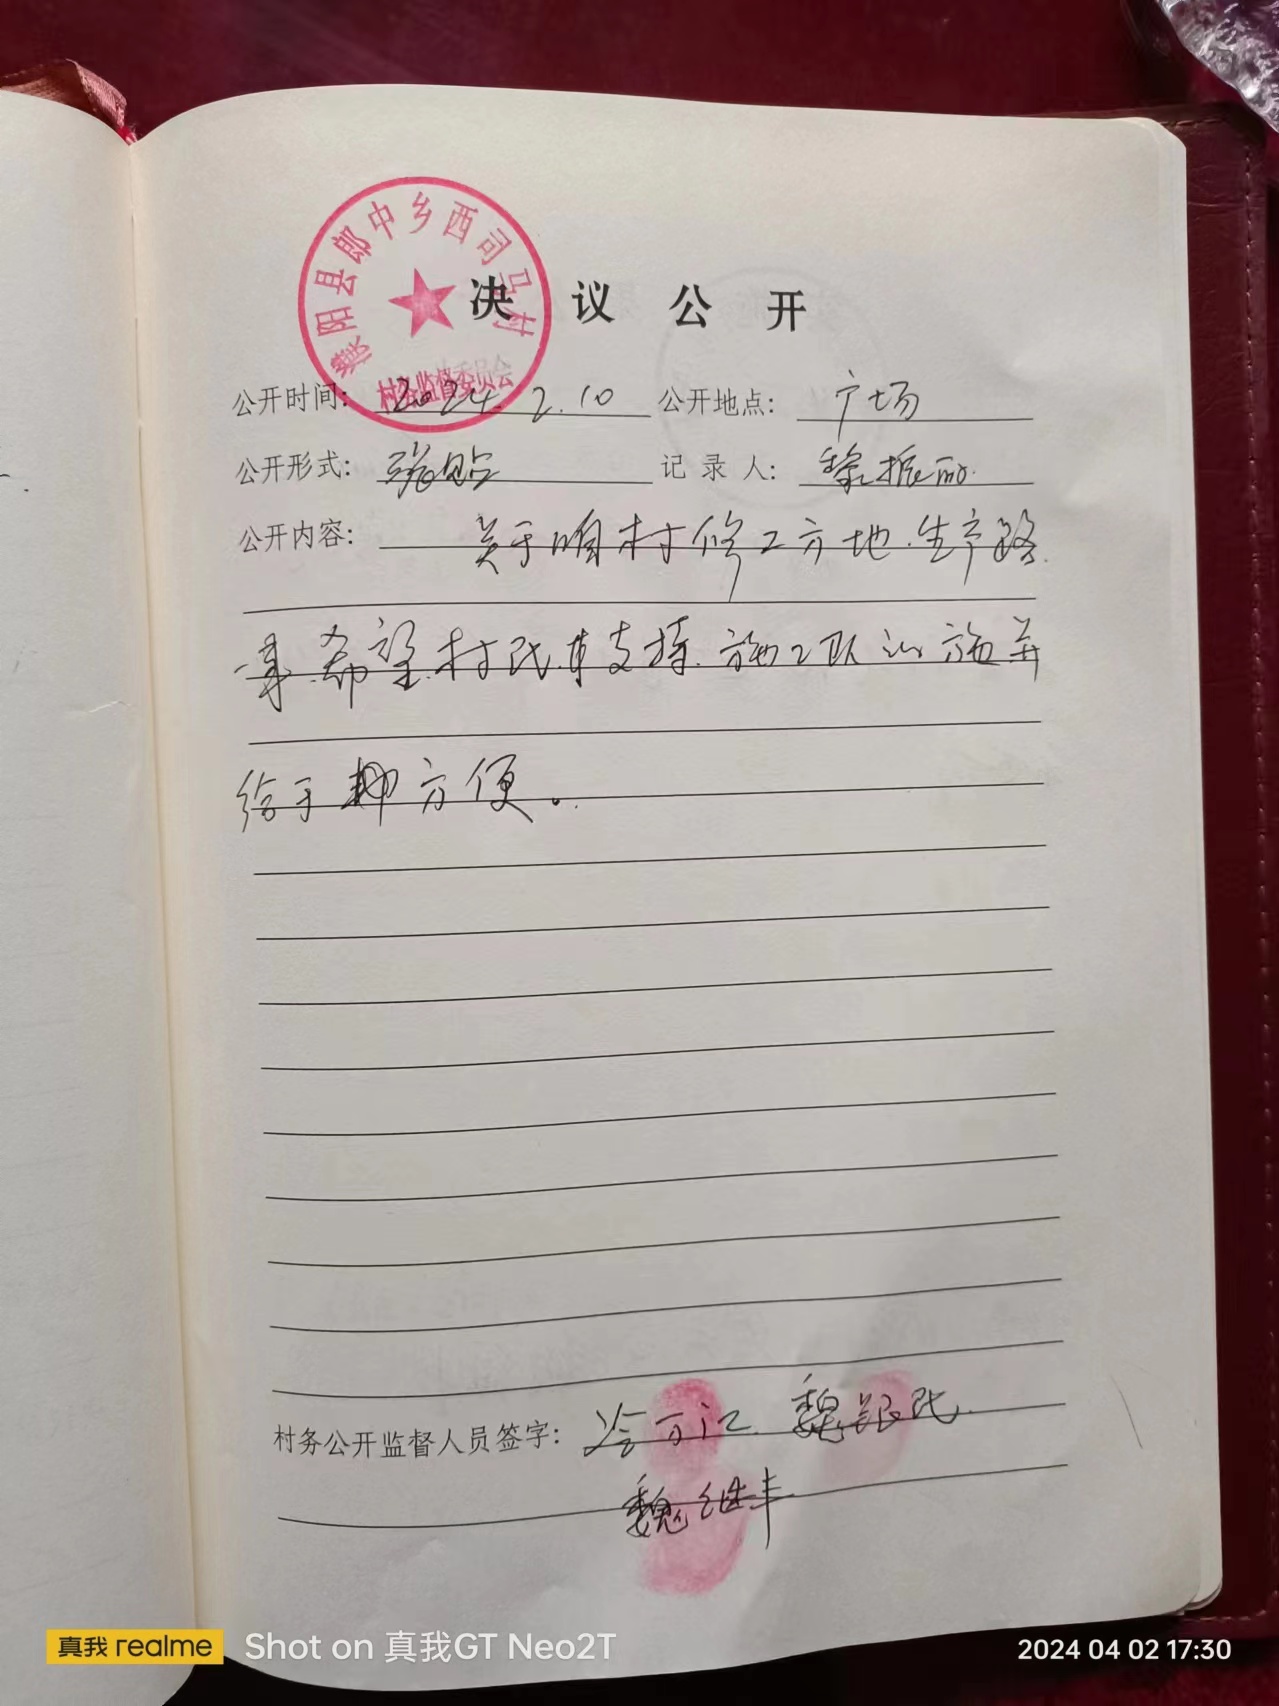 濮阳县郎中乡西司马村
村务监督委员会
决议公开
公开时间: 2024.2.10 公开地点: 广场
公开形式: 张贴 记录人: 黎振
公开内容: 关于咱村修工方地.生产路
事.希望村民.支持.施工队 施
给于 方便。
村务公开监督人员签字: 江 魏银民
魏继丰
真我 realme Shot on 真我GT Neo2T 2024 04 02 17:30